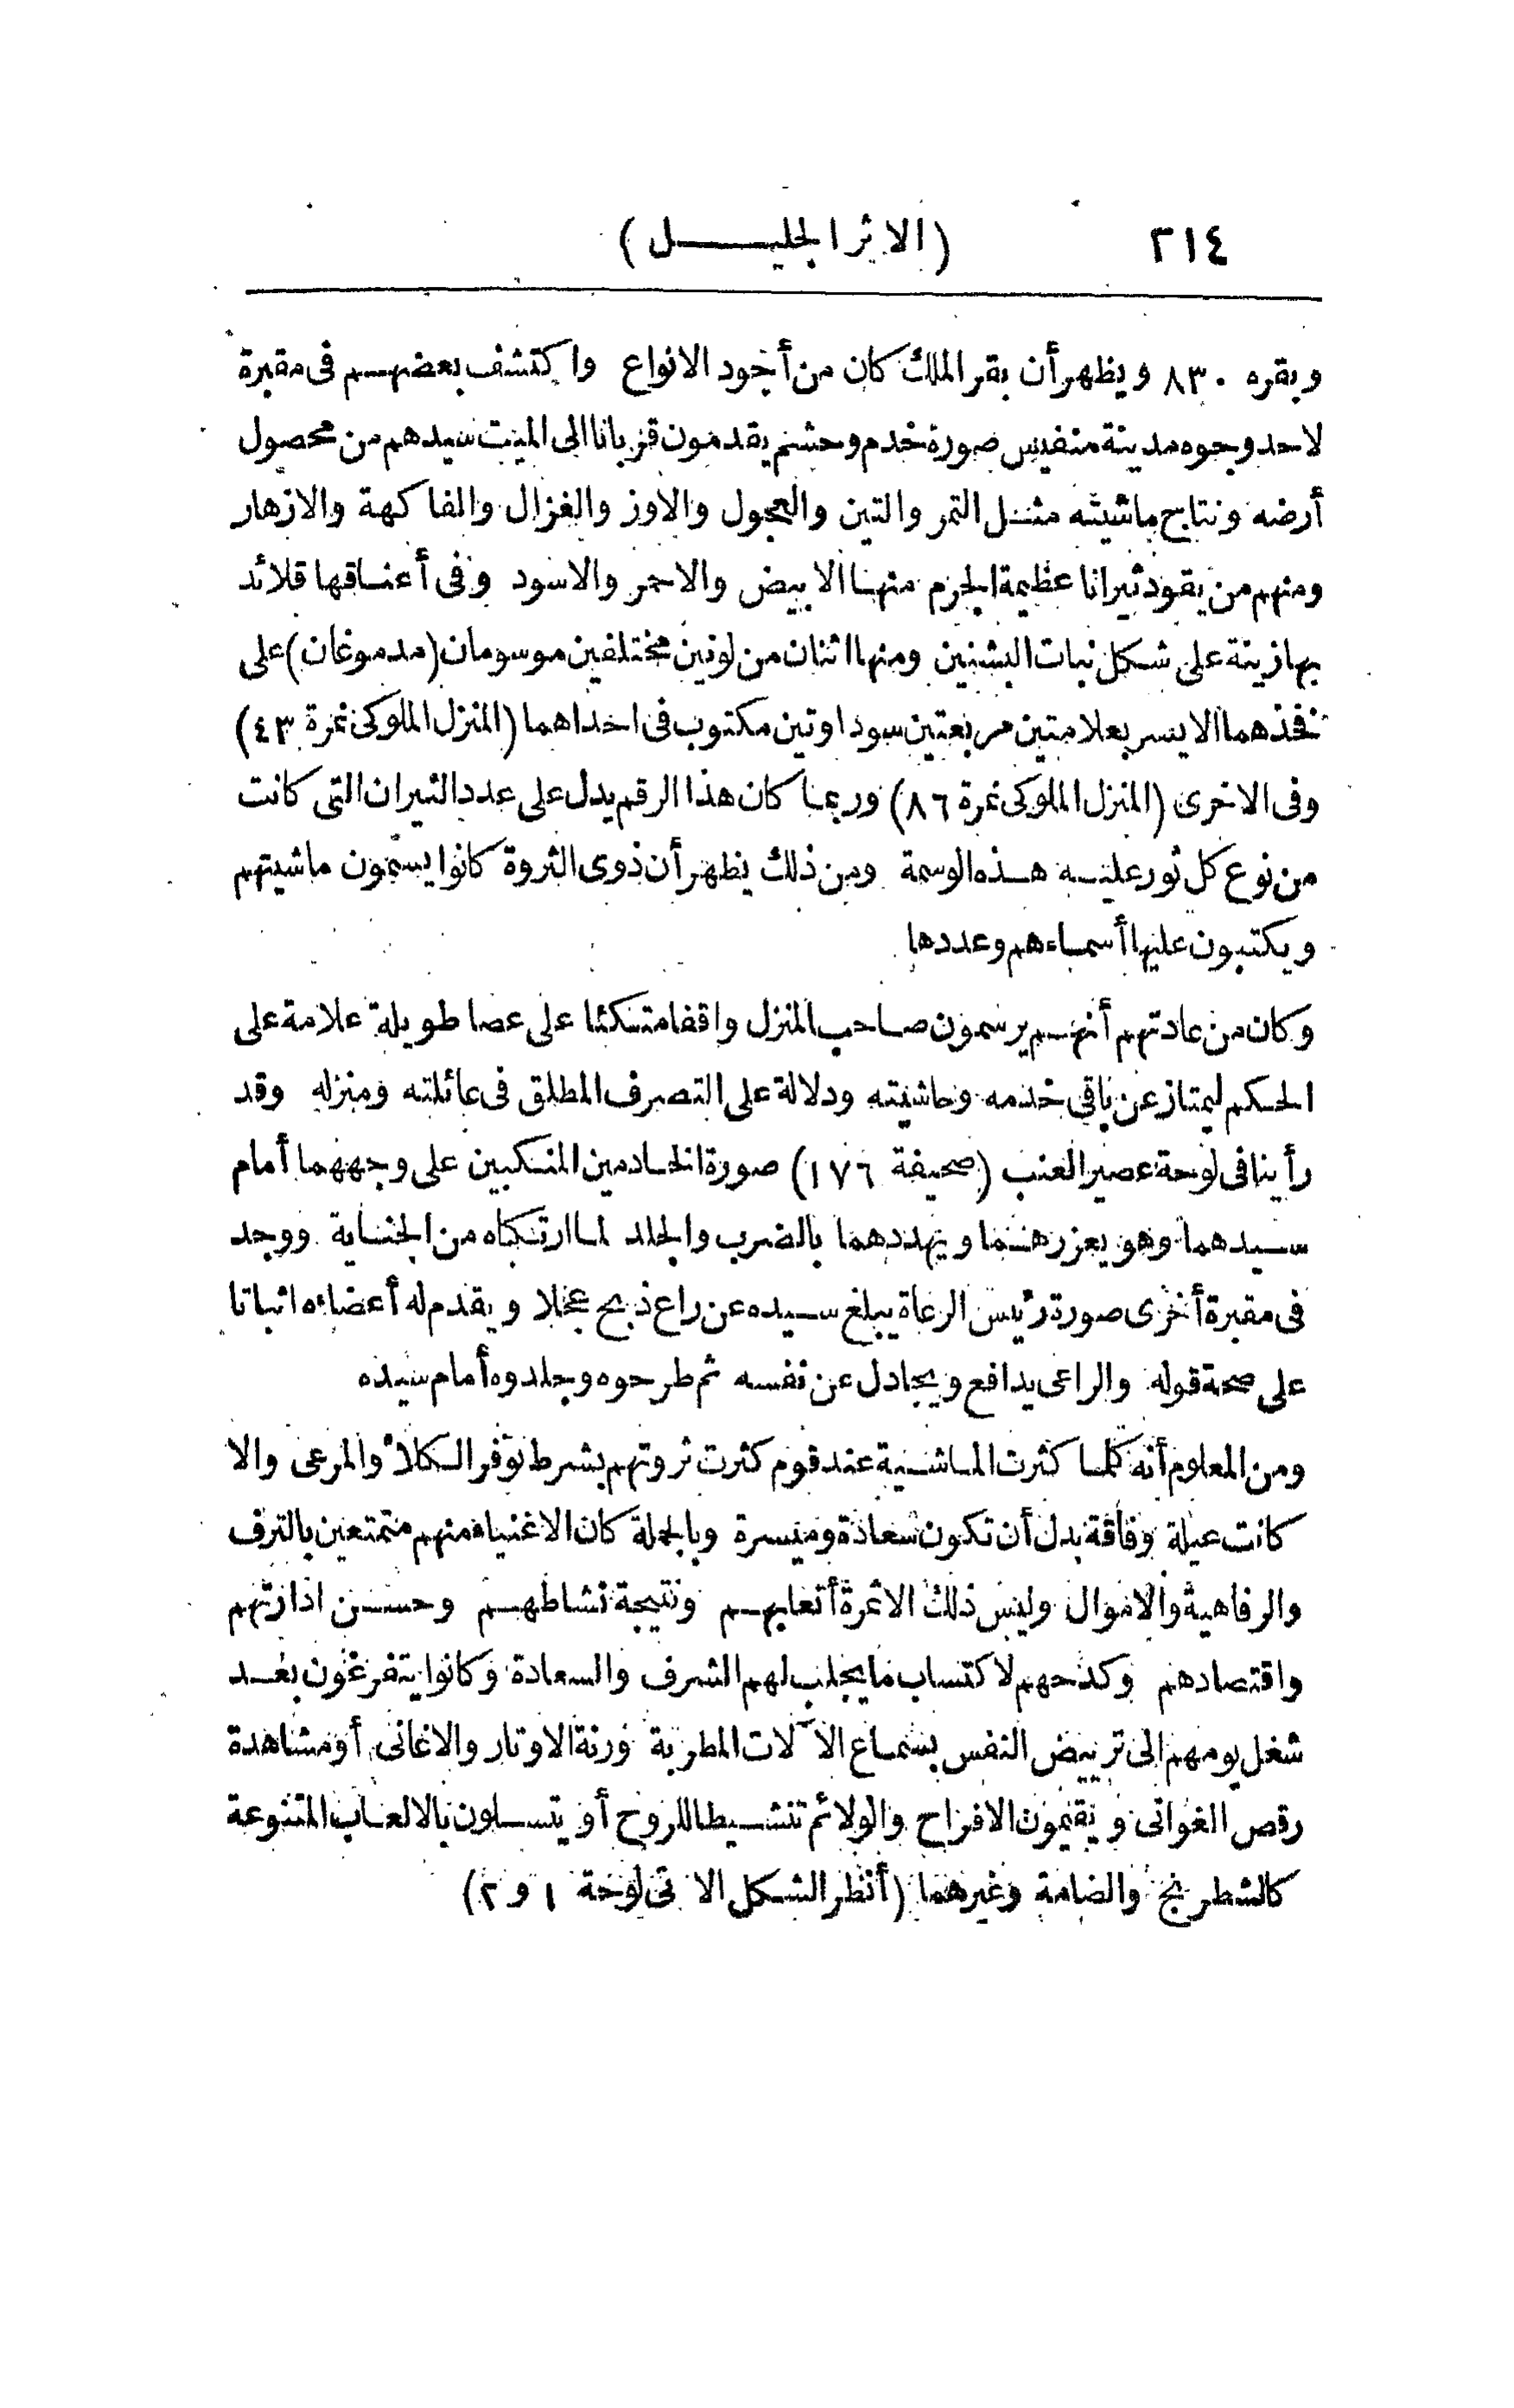 ٢١٤ (الاثر الجليـــــل)
وبقره ٨٣٠ ويظهر أن بقر الملك كان من أجود الانواع واكتشف بعضهـم فى مقبرة
لاحد وجوه مدينة منفيس صورة خدم وحشم يقدمون قربانا الى الميت سيدهم من محصول
أرضه ونتاج ماشيته مثـل التمر والتين والعجول والاوز والغزال والفاكهة والازهار
ومنهم من يقود ثيرانا عظيمة الجرم منهـا الابيض والاحمر والاسود وفى أعنـاقها قلائد
بها زينة على شكل نبات البشنين ومنها اثنان من لونين مختلفين موسومان (مدموغان) على
فخذهما الايسر بعلامتين مربعتين سوداوتين مكتوب فى احداهما (المنزل الملوكى نمرة ٤٣)
وفى الاخرى (المنزل الملوكى نمرة ٨٦) وربمـا كان هذا الرقم يدل على عدد الثيران التى كانت
من نوع كل ثور عليـه هـذه الوسمة ومن ذلك يظهر أن ذوى الثروة كانوا يسمون ماشيتهم
ويكتبون عليها أسمـاءهم وعددها
وكان من عادتهم أنهـم يرسمون صـاحب المنزل واقفا متـكئا على عصا طويلة علامة على
الحـكم ليمتاز عن باقى خدمه وحاشيته ودلالة على التصرف المطلق فى عائلته ومنزله وقد
رأينا فى لوحة عصير العنب (صحيفة ١٧٦) صورة الخـادمين المنـكبين على وجههما أمام
سـيدهما وهو يعزرهـما ويتهددهما بالضرب والجلد لمـا ارتـكباه من الجنـاية ووجد
فى مقبرة أخرى صورة رئيس الرعاة يبلغ سـيده عن راع ذبح عجلا ويقدم له أعضاءه اثباتا
على صحة قوله والراعى يدافع ويجادل عن نفسه ثم طرحوه وجلدوه أمام سيده
ومن المعلوم أنه كلمـا كثرت المـاشـية عند قوم كثرت ثروتهم بشرط توفر الـكلأ والمرعى والا
كانت عيلة وفاقة بدل أن تكون سعادة وميسرة وبالجملة كان الاغنياء منهم متمتعين بالترف
والرفاهية والاموال وليس ذلك الا ثمرة أتعابهـم ونتيجة نشاطهـم وحسـن ادارتهم
واقتصادهم وكدحهم لاكتساب ما يجلب لهم الشرف والسعادة وكانوا يتفرغون بعـد
شغل يومهم الى ترييض النفس بسمـاع الآلات المطربة ورنة الاوتار والاغانى أو مشاهدة
رقص الغوانى ويقيمون الافراح والولائم تنشـيطا للروح أو يتسـلون بالالعـاب المتنوعة
كالشطرنج والضامة وغيرهما (أنظر الشـكل الاتى لوحة ١ و ٢)